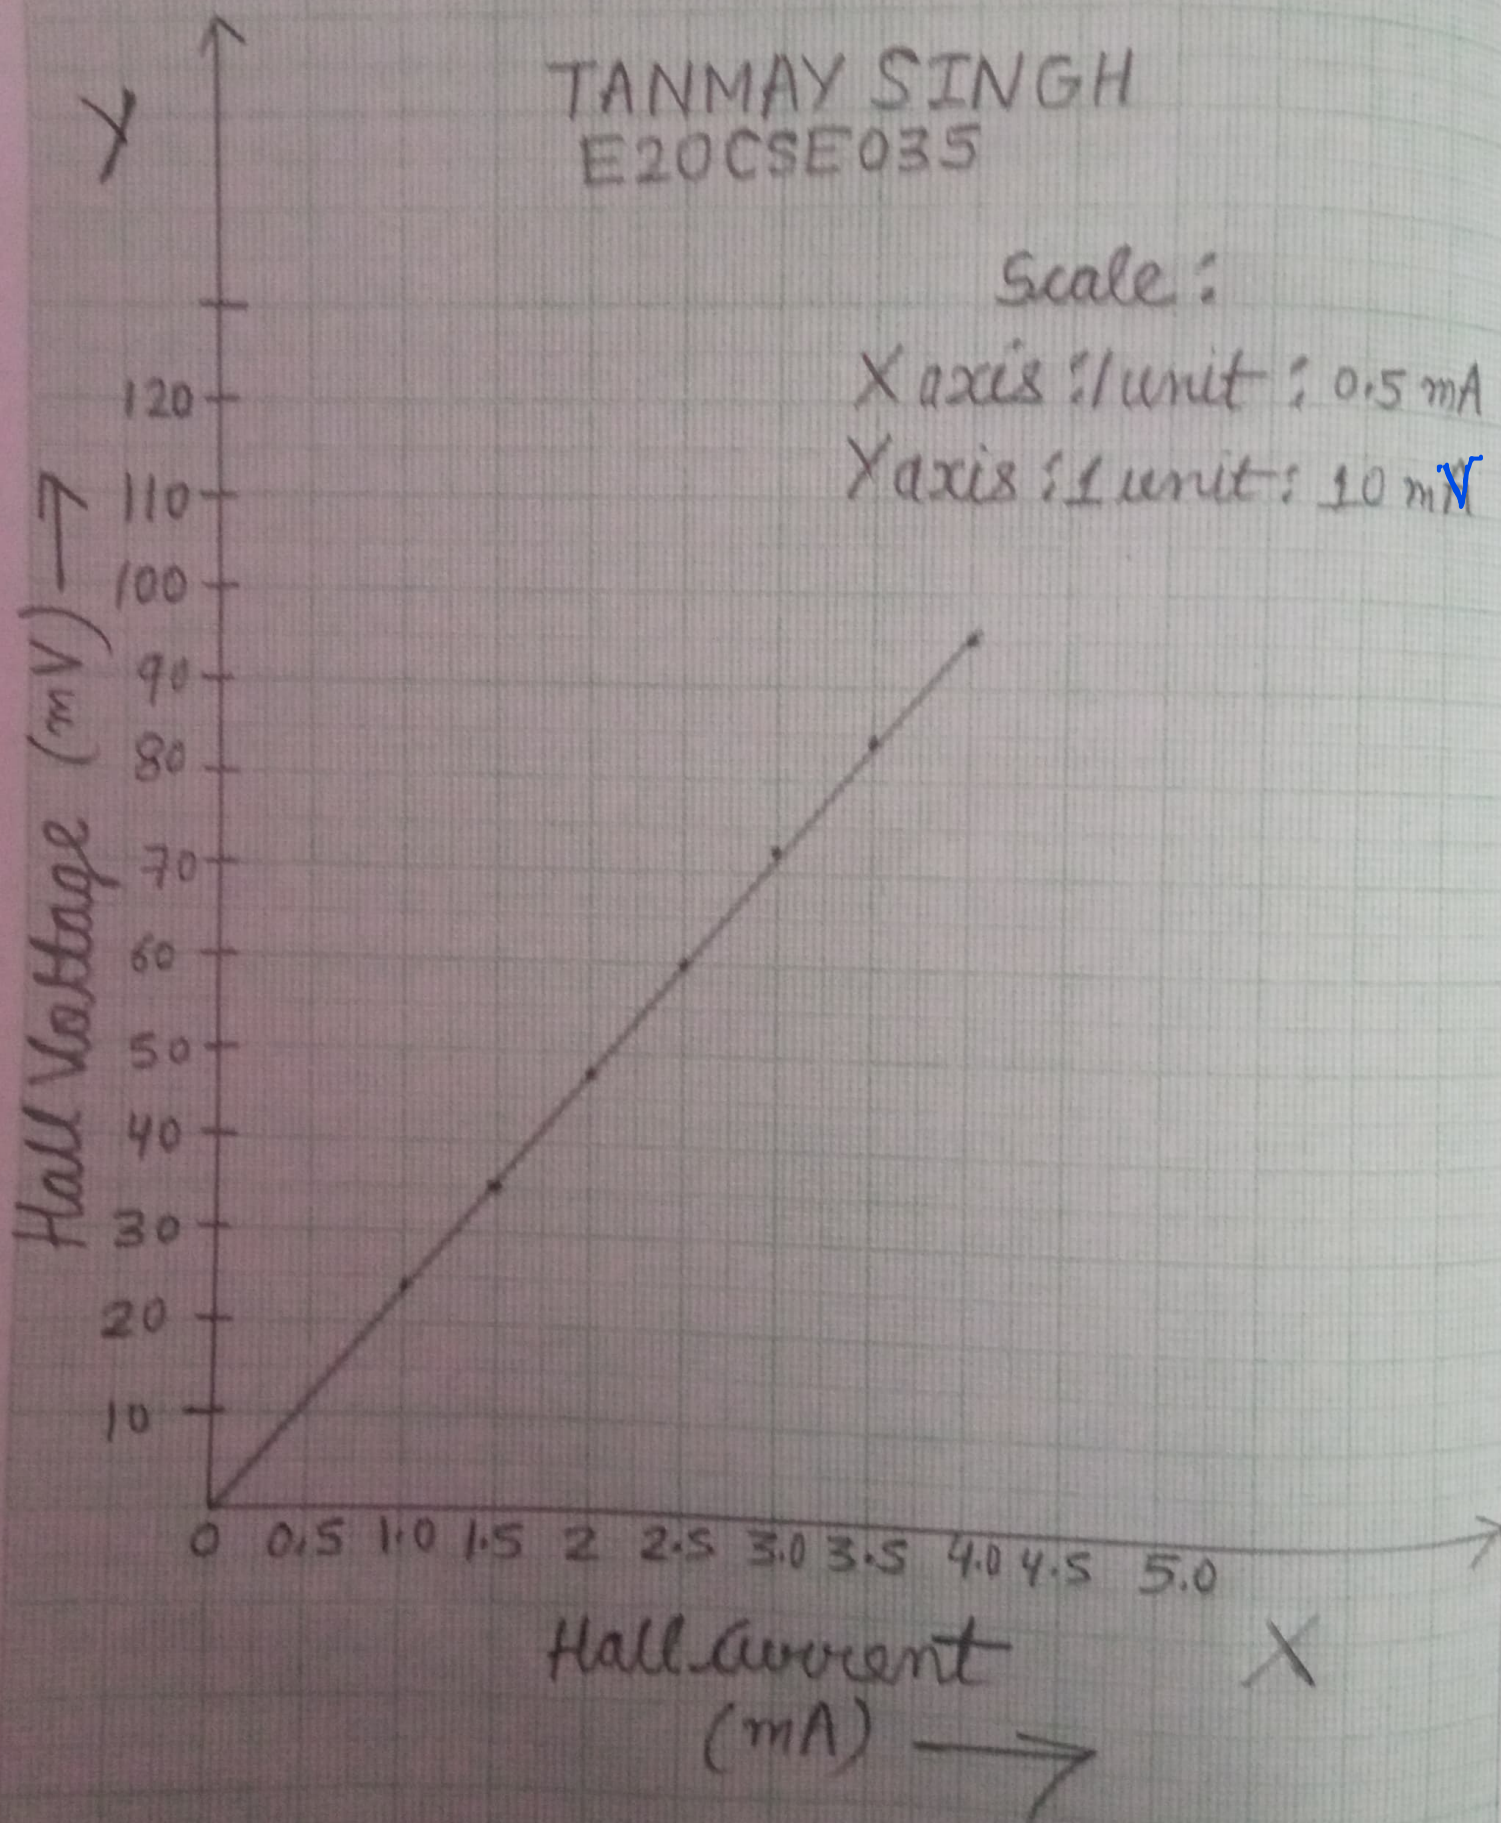 TANMAY SINGH
E20CSE035
Y
Scale:
X axis : 1 unit : 0.5 mA
Y axis : 1 unit : 10 mV
120
110
100
90
80
70
60
50
40
30
20
10
Hall Voltage (mV)
0 0.5 1.0 1.5 2 2.5 3.0 3.5 4.0 4.5 5.0
Hall Current
(mA)
X